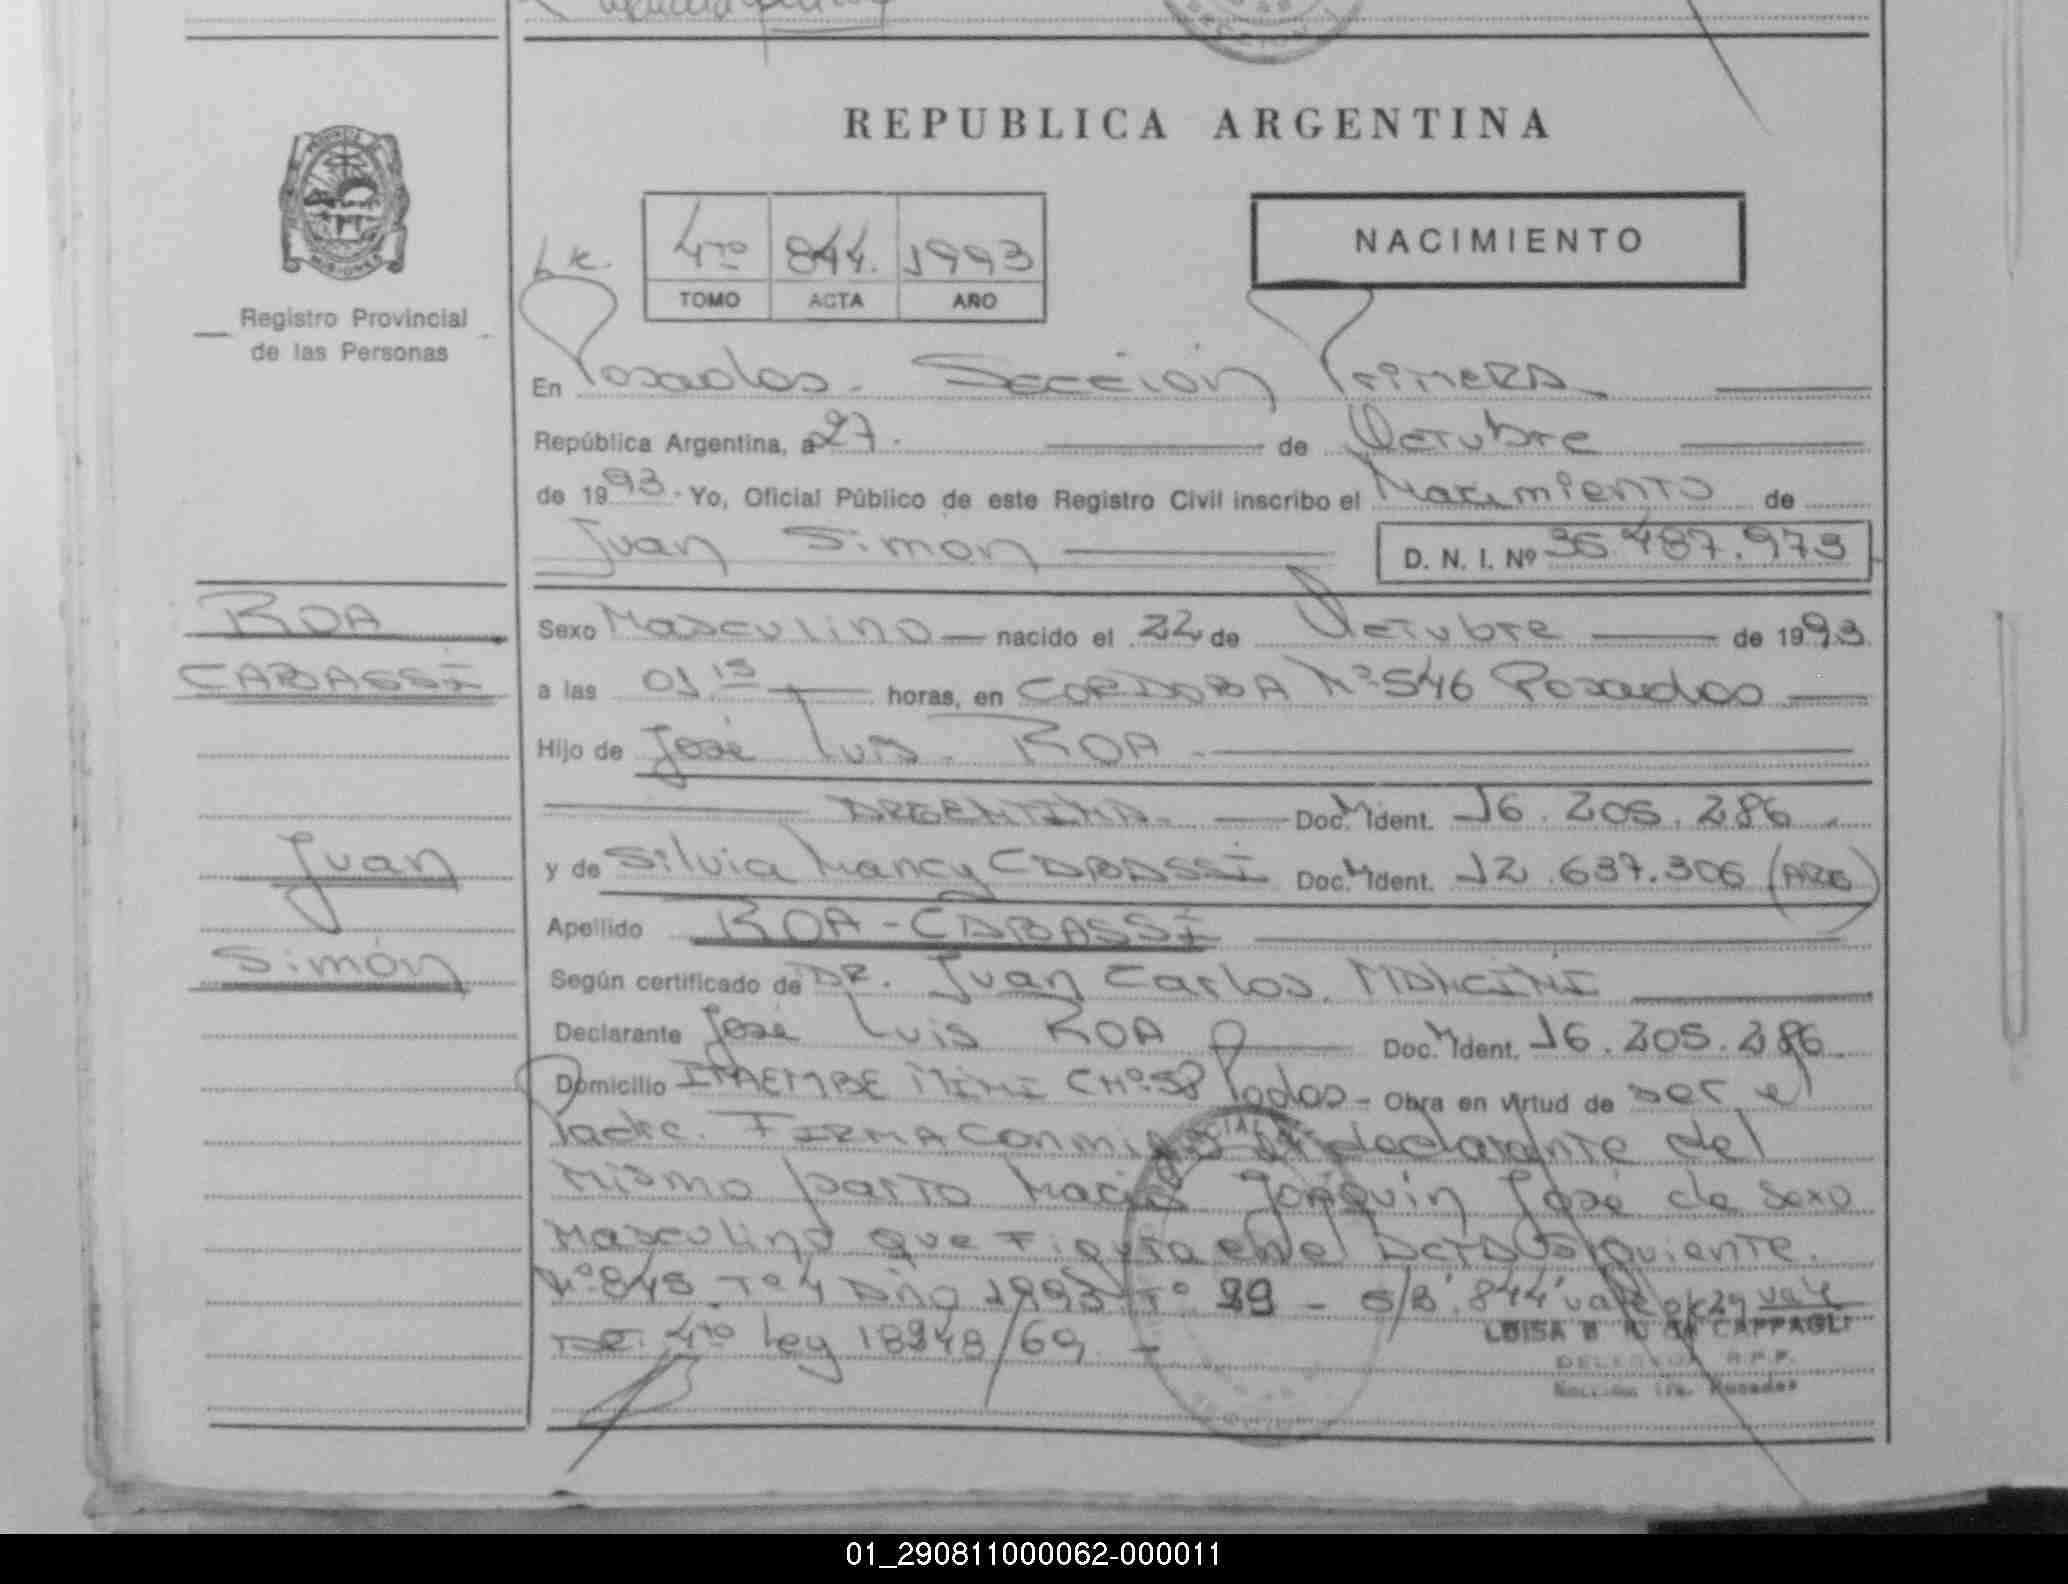 REPUBLICA ARGENTINA
PROVINCIA
MISIONES
Registro Provincial
de las Personas
4to 844. 1993
TOMO ACTA AÑO
NACIMIENTO
En Posadas. Sección Primera
República Argentina, a 27. de Octubre
de 1993. Yo, Oficial Público de este Registro Civil inscribo el Nacimiento de
Juan Simon D. N. I. Nº 36.487.973
ROA
CABASSI
Juan
Simón
Sexo Masculino nacido el 22 de Octubre de 1993.
a las 01.15 horas, en CORDOBA Nº 546 Posadas
Hijo de José Luis. ROA.
ARGENTINA. Doc. Ident. 16.205.286
y de Silvia Nancy CABASSI Doc. Ident. 12.637.306 (ARG)
Apellido ROA-CABASSI
Según certificado de DR. Juan Carlos. MANCINI
Declarante José Luis ROA Doc. Ident. 16.205.286
Domicilio ITAEMBE MINI CHº 58 Padas - Obra en virtud de ser el
Padre. FIRMA conmigo el declarante del
mismo parto Nació Joaquín José de sexo
Masculino que Figura en el Acta Siguiente.
Nº 845 Tº 4 Año 1993 Fº 29 - S/B. 844 vale 29 vale
4to Ley 18248/69. -
LUISA CAPPAGLI
DELEGADA R.P.P.
Sección 1ra. Posadas
01_290811000062-000011